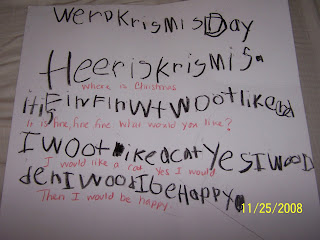 WerDKrismisDay
Heeriskrismis.
Where is Christmas
itisFinFinWtWootlike
It is fine, fine fine. What would you like?
IWootlikeacatyesIWOOD
I would like a cat. Yes I would
denIWOOdIbeHappy
Then I would be happy.
11/25/2008